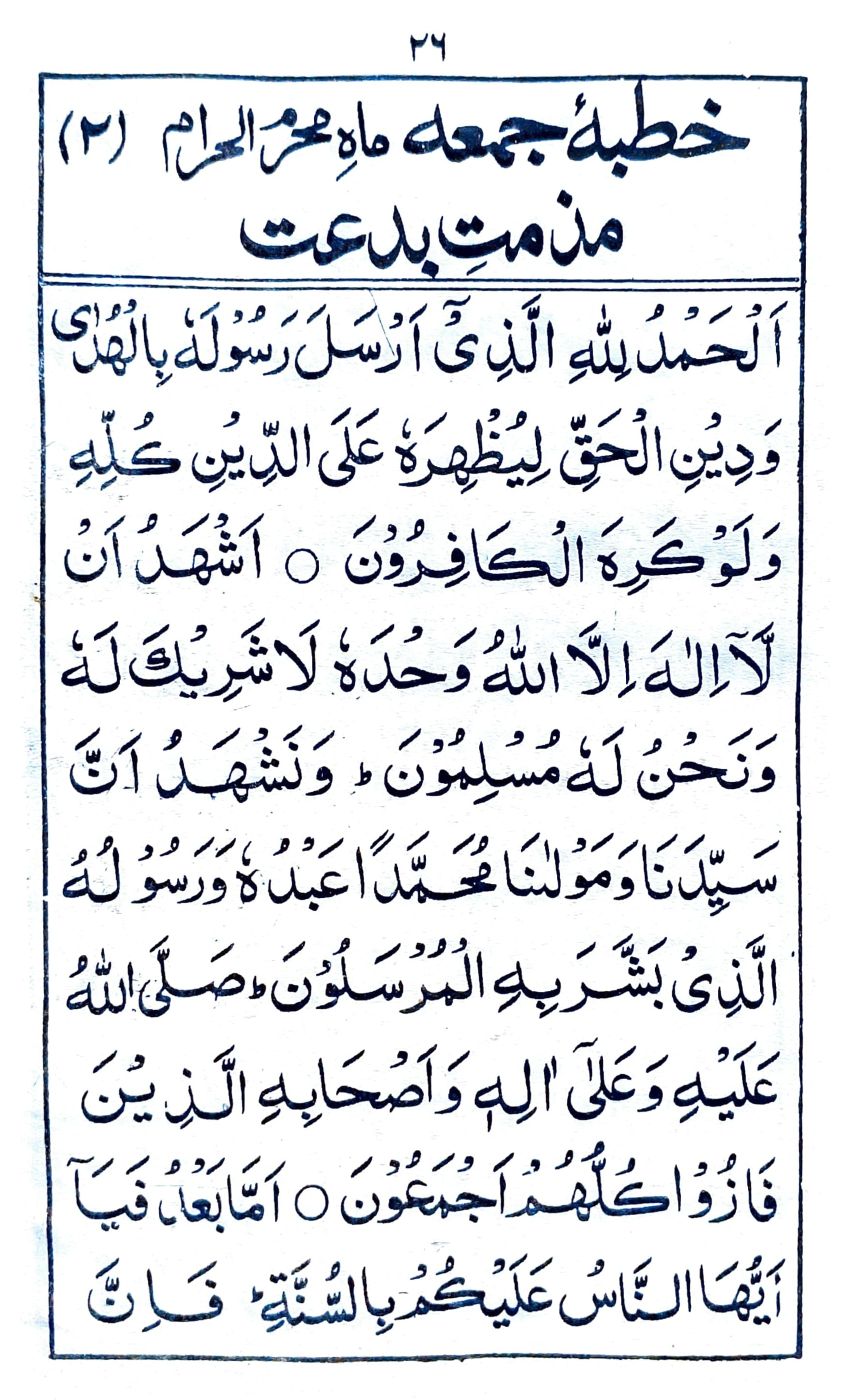 ۲۶
خطبۂ جمعہ ماہِ محرم الحرام (۲)
مذمتِ بدعت
اَلْحَمْدُ لِلّٰهِ الَّذِیْٓ اَرْسَلَ رَسُوْلَهٗ بِالْهُدٰی
وَدِیْنِ الْحَقِّ لِیُظْهِرَهٗ عَلَی الدِّیْنِ كُلِّهِ
وَلَوْ كَرِهَ الْكَافِرُوْنَ ○ اَشْهَدُ اَنْ
لَّآ اِلٰهَ اِلَّا اللّٰهُ وَحْدَهٗ لَا شَرِیْكَ لَهٗ
وَنَحْنُ لَهٗ مُسْلِمُوْنَ ط وَنَشْهَدُ اَنَّ
سَیِّدَنَا وَمَوْلٰنَا مُحَمَّدًا عَبْدُهٗ وَرَسُوْلُهُ
الَّذِیْ بَشَّرَ بِهِ الْمُرْسَلُوْنَ ط صَلَّی اللّٰهُ
عَلَیْهِ وَعَلٰٓی اٰلِهٖ وَاَصْحَابِهِ الَّذِیْنَ
فَازُوْا كُلُّهُمْ اَجْمَعُوْنَ ○ اَمَّا بَعْدُ فَیَآ
اَیُّهَا النَّاسُ عَلَیْكُمْ بِالسُّنَّةِ ط فَاِنَّ